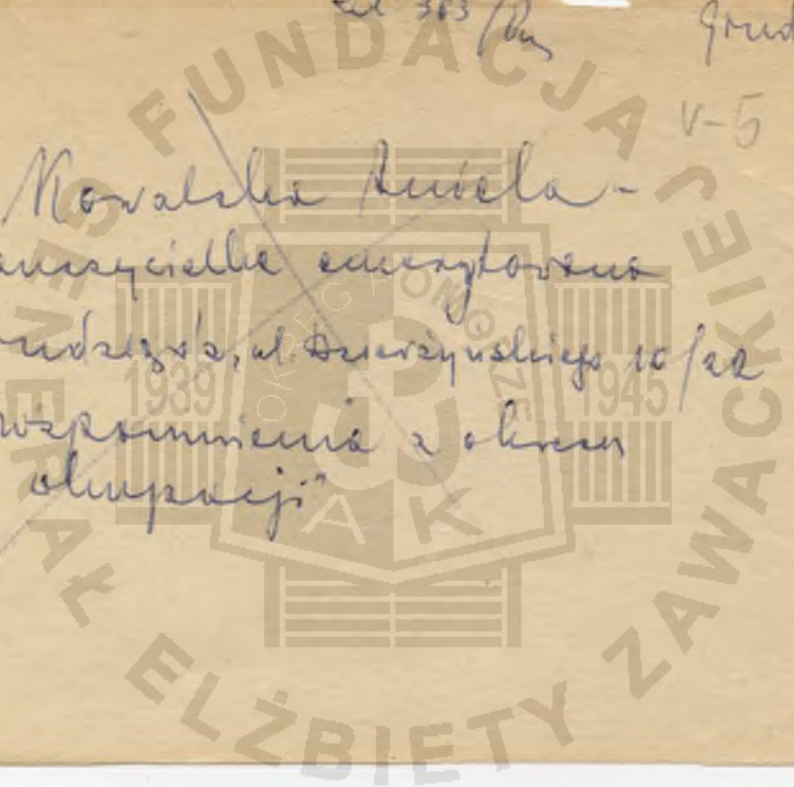 383/Pm Grud
V-5
Kowalska Aniela -
auczycielka emerytowana
udziądz, ul. Dzierżyńskiego 10/22
wspomnienia z okresu
okupacji"
FUNDACJA GENERAŁ ELŻBIETY ZAWACKIEJ
OKRĘG POMORZE
1939 1945
AK